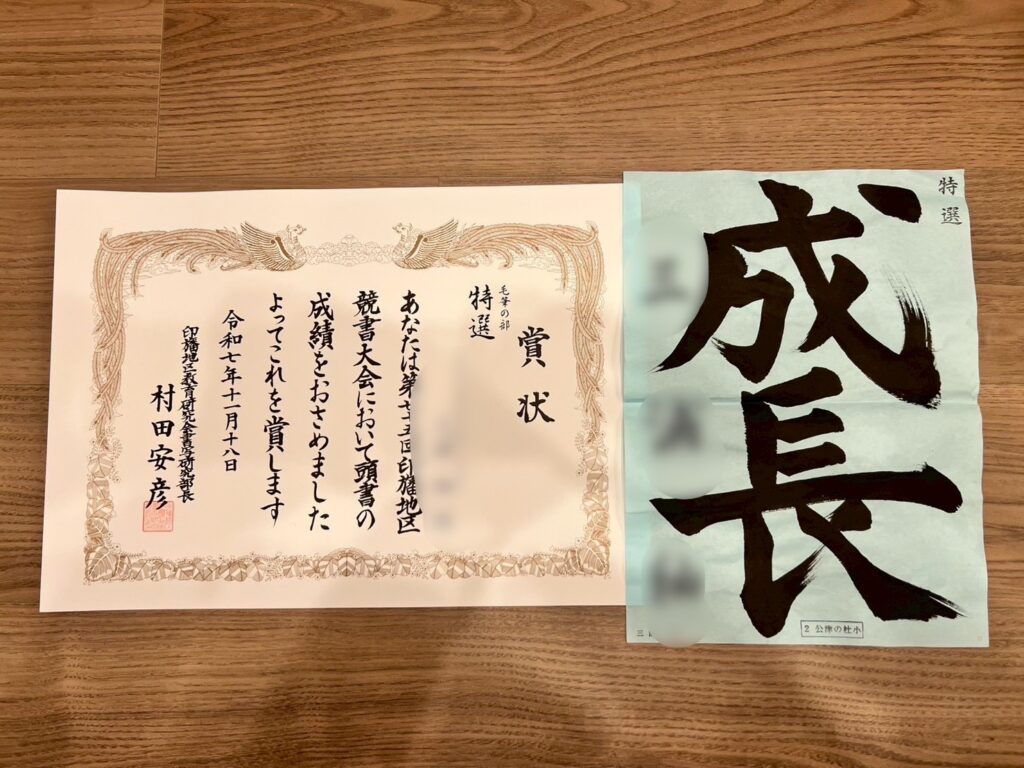 賞状
毛筆の部
特選
あなたは第七五回印旛地区
競書大会において頭書の
成績をおさめました
よってこれを賞します
令和七年十一月十八日
印旛地区教育研究会書写研究部長
村田安彦
特選
成長
2 公津の杜小
三